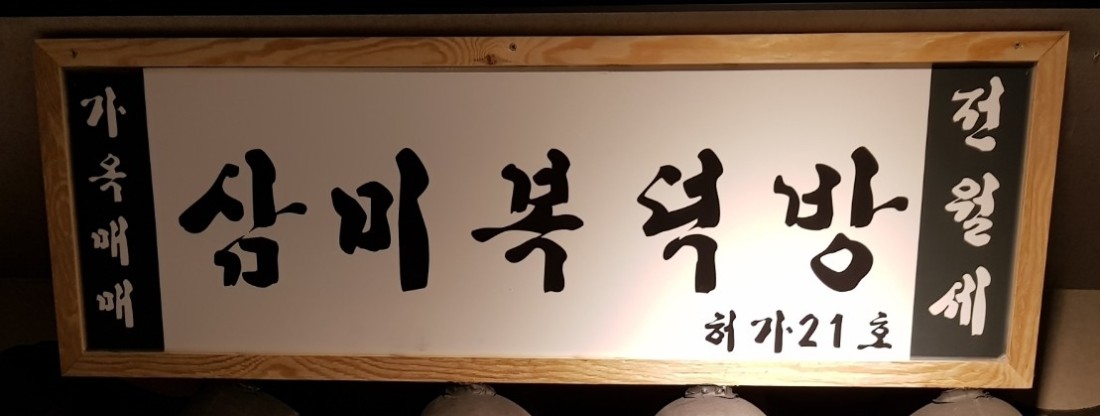 가옥매매
삼미복덕방
허가21호
전월세